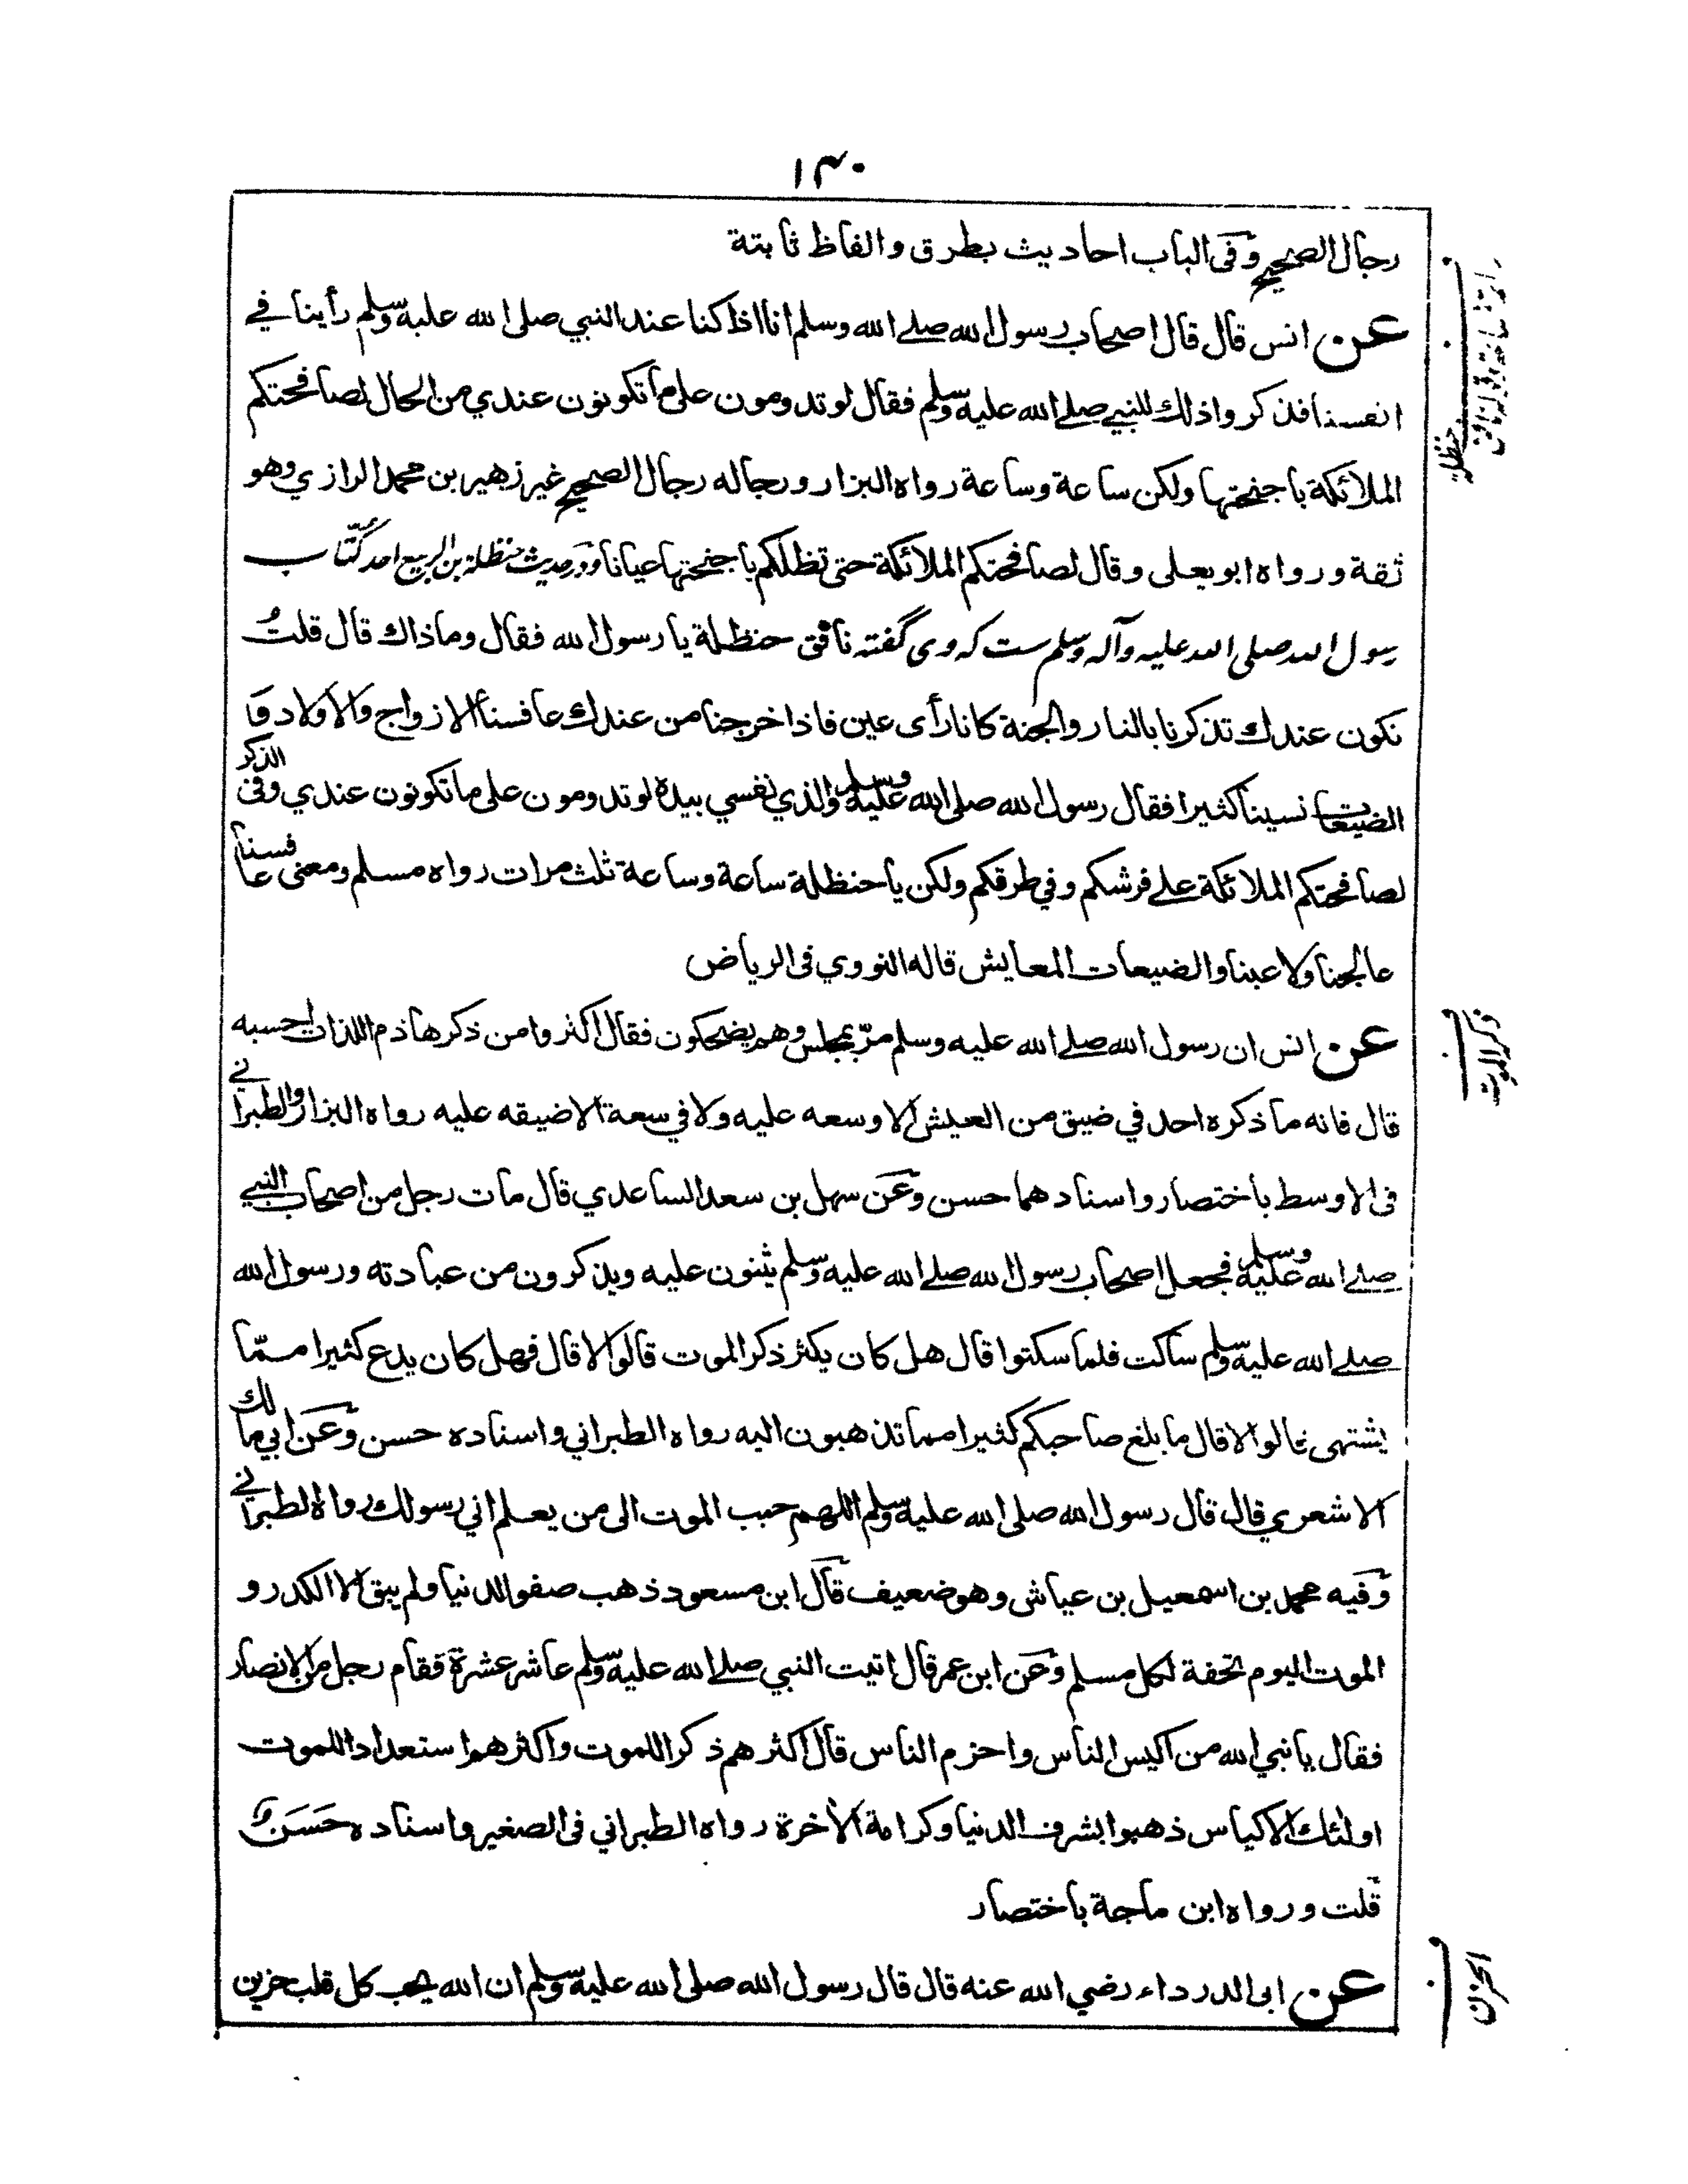 ١٣٠
رجال الصحيح وفى الباب احاديث بطرق والفاظ ثابتة
عن انس قال قال اصحاب رسول الله صلے الله وسلم انا اذا كنا عند النبي صلى الله عليه وسلم رأينا في
انفسنا فذكروا ذلك للنبي صلے الله عليه وسلم فقال لو تدومون على ما تكونون عندي من الحال لصافحتكم
الملائكة باجنحتها ولكن ساعة وساعة رواه البزار ورجاله رجال الصحيح غير زهير بن محمد الرازي وهو
ثقة ورواه ابو يعلى وقال لصافحتكم الملائكة حتى تظلكم باجنحتها عيانا ودر حديث حنظلة بن الربيع احد كتّاب
رسول الله صلى الله عليه وآله وسلم ست كه وى گفته نافق حنظلة يا رسول الله فقال وما ذاك قال قلتُ
نكون عندك تذكرنا بالنار والجنة كانا رأى عين فاذا خرجنا من عندك عافسنا الازواج والاولاد و
الضيعات نسينا كثيرا فقال رسول الله صلى الله عليه وسلم والذي نفسي بيده لو تدومون على ما تكونون عندي وفى الذكر
لصافحتكم الملائكة على فرشكم وفي طرقكم ولكن يا حنظلة ساعة وساعة ثلث مرات رواه مسلم ومعنى عافسنا
عالجنا ولاعبنا والضيعات المعايش قاله النووي فى الرياض
عن انس ان رسول الله صلے الله عليه وسلم مرّ بمجلس وهم يضحكون فقال اكثروا من ذكر هاذم اللذات احسبه
قال فانه ما ذكره احد في ضيق من العيش الا وسعه عليه ولا في سعة الا ضيقه عليه رواه البزار والطبراني
فى الاوسط باختصار واسنادهما حسن وعن سهل بن سعد الساعدي قال مات رجل من اصحاب النبي
صلے الله عليه وسلم فجعل اصحاب رسول الله صلے الله عليه وسلم يثنون عليه ويذكرون من عبادته ورسول الله
صلے الله عليه وسلم ساكت فلما سكتوا قال هل كان يكثر ذكر الموت قالوا لا قال فهل كان يدع كثيرا ممّا
يشتهى قالوا لا قال ما بلغ صاحبكم كثيرا مما تذهبون اليه رواه الطبراني واسناده حسن وعن ابي مالك
الاشعري قال قال رسول الله صلى الله عليه وسلم اللهم حبب الموت الى من يعلم اني رسولك رواه الطبراني
وفيه محمد بن اسمعيل بن عياش وهو ضعيف قال ابن مسعود ذهب صفو الدنيا ولم يبق الا الكدر و
الموت اليوم تحفة لكل مسلم وعن ابن عمر قال اتيت النبي صلے الله عليه وسلم عاشر عشرة فقام رجل من الانصار
فقال يا نبي الله من اكيس الناس واحزم الناس قال اكثرهم ذكرا للموت واكثرهم استعدادا للموت
اولئك الاكياس ذهبوا بشرف الدنيا وكرامة الأخرة رواه الطبراني فى الصغير واسناده حَسَنٌ
قلت ورواه ابن ماجة باختصار
عن ابى الدرداء رضي الله عنه قال قال رسول الله صلى الله عليه وسلم ان الله يحب كل قلب حزين
حنظلة
ذكر الموت
الحزن